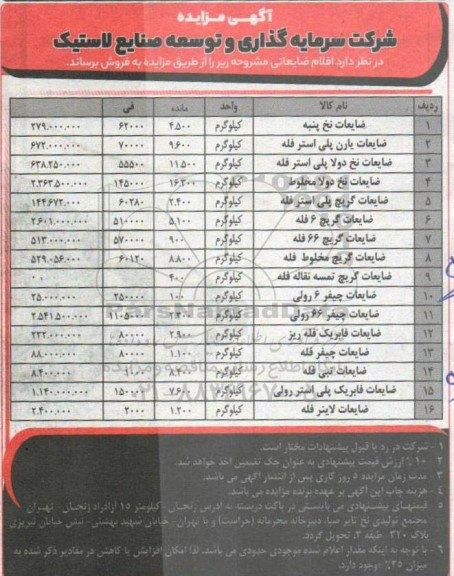 آگهی مزایده
شرکت سرمایه گذاری و توسعه صنایع لاستیک
در نظر دارد اقلام ضایعاتی مشروحه زیر را از طریق مزایده به فروش برساند.
ردیف نام کالا واحد مانده فی
۱ ضایعات نخ پنبه کیلوگرم ۴.۵۰۰ ۶۲۰۰۰ ۲۷۹.۰۰۰.۰۰۰
۲ ضایعات یارن پلی استر فله کیلوگرم ۹.۶۰۰ ۷۰۰۰۰ ۶۷۲.۰۰۰.۰۰۰
۳ ضایعات نخ دولا پلی استر فله کیلوگرم ۱۱.۵۰۰ ۵۵۵۰۰ ۶۳۸.۲۵۰.۰۰۰
۴ ضایعات نخ دولا مخلوط کیلوگرم ۱۶.۳۰۰ ۱۴۵۰۰۰ ۲.۳۶۳.۵۰۰.۰۰۰
۵ ضایعات گریج پلی استر فله کیلوگرم ۲.۴۰۰ ۶۰۲۸۰ ۱۴۴.۶۷۲.۰۰۰
۶ ضایعات گریج ۶ فله کیلوگرم ۵.۱۰۰ ۵۱۰۰۰۰ ۲.۶۰۱.۰۰۰.۰۰۰
۷ ضایعات گریج ۶۶ فله کیلوگرم ۹۰۰ ۵۷۰۰۰۰ ۵۱۳.۰۰۰.۰۰۰
۸ ضایعات گریج مخلوط فله کیلوگرم ۸.۸۰۰ ۶۰۱۲۰ ۵۲۹.۰۵۶.۰۰۰
۹ ضایعات گریج تسمه نقاله فله کیلوگرم ۴۰۰
۱۰ ضایعات چیفر ۶ رولی کیلوگرم ۱۰۰ ۲۵۰۰۰۰ ۲۵.۰۰۰.۰۰۰
۱۱ ضایعات چیفر ۶۶ رولی کیلوگرم ۲.۳۰۰ ۲.۵۴۱.۵۰۰.۰۰۰
۱۲ ضایعات فابریک فله ریز کیلوگرم ۲.۹۰۰ ۲۳۲.۰۰۰.۰۰۰
۱۳ ضایعات چیفر فله کیلوگرم ۱.۱۰۰ ۸۰۰۰۰ ۸۸.۰۰۰.۰۰۰
۱۴ ضایعات نبی فله کیلوگرم ۸.۴۰۰ ۸.۴۰۰.۰۰۰
۱۵ ضایعات فابریک پلی استر رولی کیلوگرم ۷.۶۰۰ ۱.۱۴۰.۰۰۰.۰۰۰
۱۶ ضایعات لاینر فله کیلوگرم ۱.۲۰۰ ۲۰۰۰ ۲.۴۰۰.۰۰۰
۱- شرکت در رد یا قبول پیشنهادات مختار است.
۲- ۱۰٪ ارزش قیمت پیشنهادی به عنوان چک تضمین اخذ خواهد شد.
۳- مدت زمان مزایده ۵ روز کاری پس از انتشار آگهی می باشد.
۴- هزینه چاپ این آگهی بر عهده برنده مزایده می باشد.
۵- قیمتهای پیشنهادی می بایستی در پاکت دربسته به آدرس زنجان - کیلومتر ۱۵ آزادراه زنجان - تهران
مجتمع تولیدی نخ تایر صبا، دبیرخانه محرمانه (حراست) و یا تهران - خیابان شهید بهشتی - نبش خیابان تبریزی
پلاک ۳۱۰ - طبقه ۳، تحویل گردد.
۶- با توجه به اینکه مقدار اعلام شده موجودی حدودی می باشد، لذا امکان افزایش یا کاهش در مقادیر ذکر شده به
میزان ۲۵٪ وجود دارد.